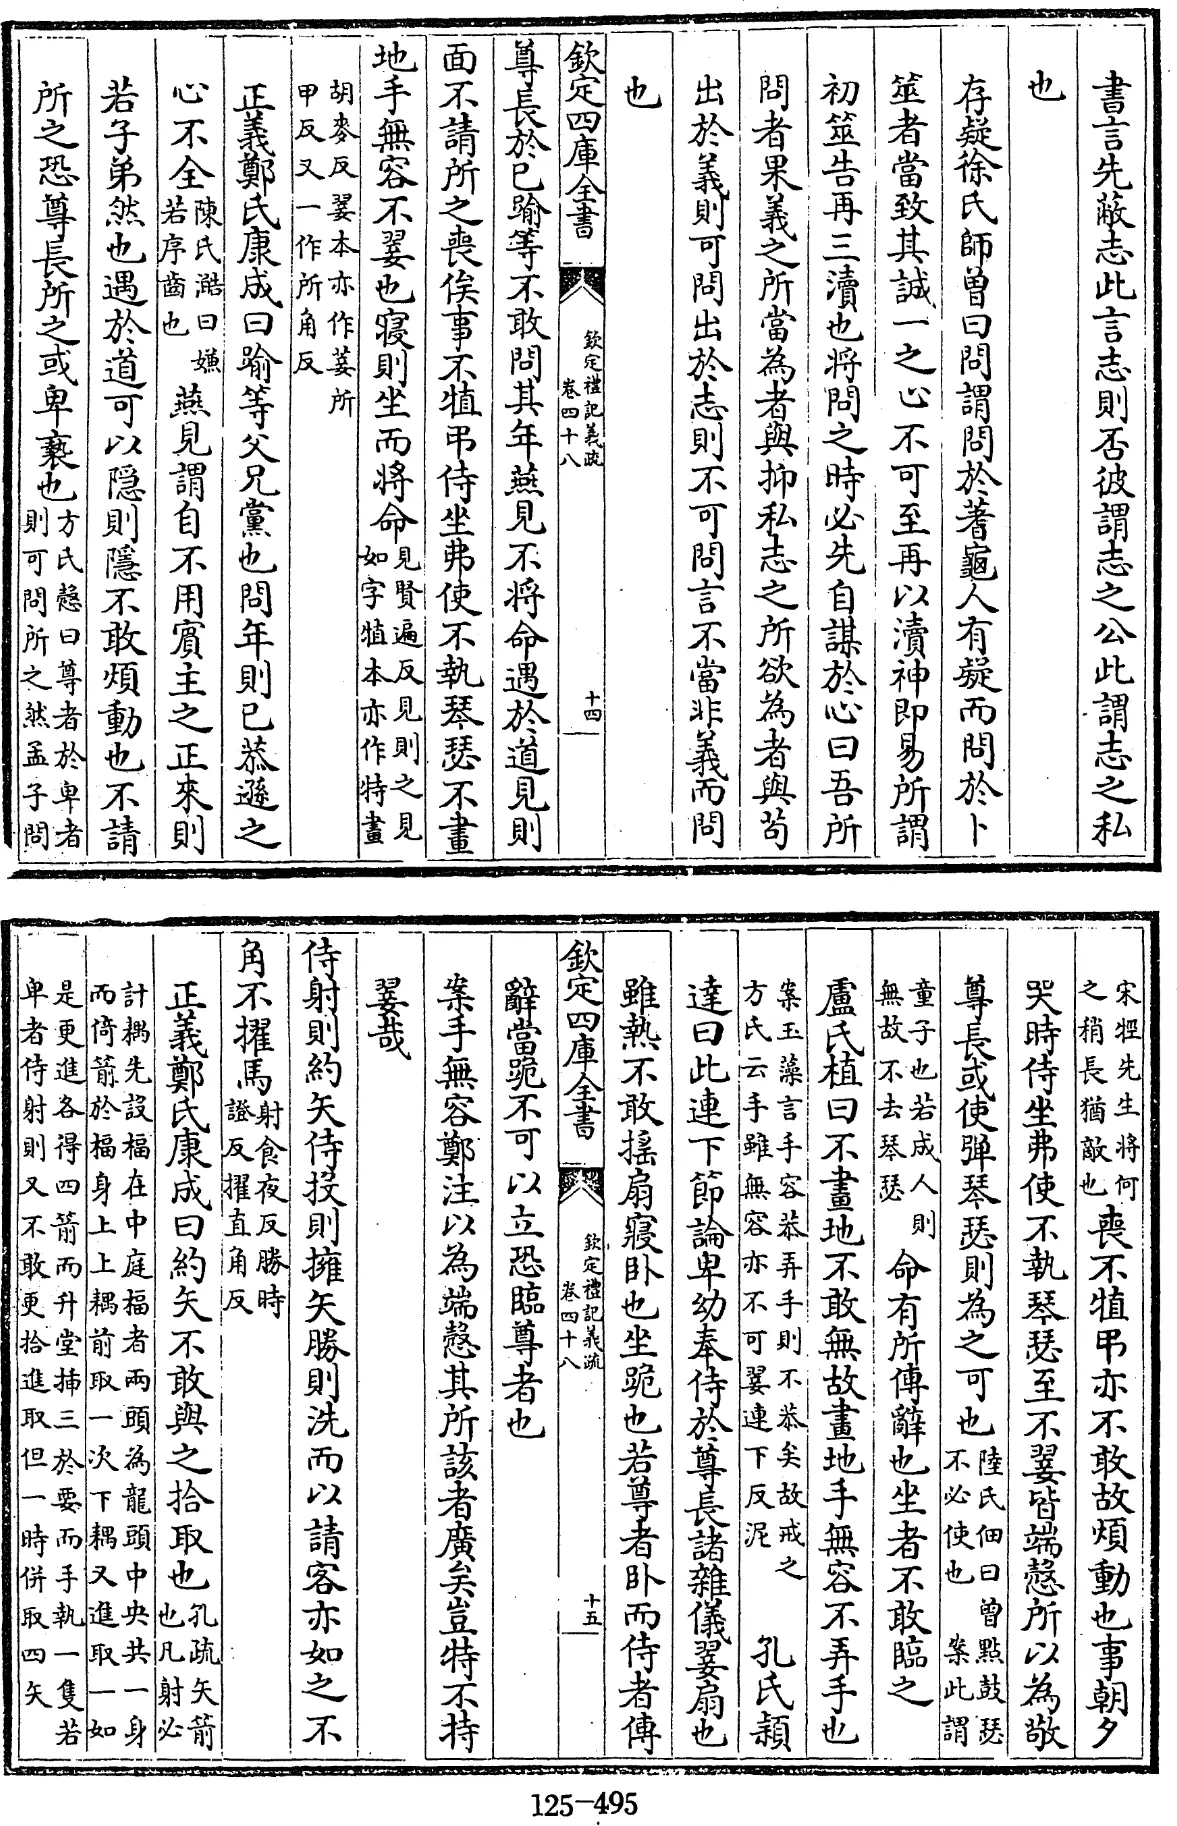 書言先蔽志此言志則否彼謂志之公此謂志之私
也
存疑徐氏師曾曰問謂問於蓍龜人有疑而問於卜
筮者當致其誠一之心不可至再以瀆神即易所謂
初筮告再三瀆也將問之時必先自謀於心曰吾所
問者果義之所當為者與抑私志之所欲為者與苟
出於義則可問出於志則不可問言不當非義而問
也
欽定四庫全書
欽定禮記義疏
卷四十八
十四
尊長於已踰等不敢問其年燕見不將命遇於道見則
面不請所之喪俟事不犆弔侍坐弗使不執琴瑟不畫
地手無容不翣也寢則坐而將命見賢遍反見則之見
如字犆本亦作特畫
胡麥反翣本亦作菨所
甲反又一作所角反
正義鄭氏康成曰踰等父兄黨也問年則已恭遜之
心不全陳氏澔曰嫌
若序齒也燕見謂自不用賓主之正來則
若子弟然也遇於道可以隱則隱不敢煩動也不請
所之恐尊長所之或卑褻也方氏慤曰尊者於卑者
則可問所之然孟子問
宋牼先生將何
之稍長猶敵也喪不犆弔亦不敢故煩動也事朝夕
哭時侍坐弗使不執琴瑟至不翣皆端慤所以為敬
尊長或使彈琴瑟則為之可也陸氏佃曰曾點鼓瑟
不必使也 案此謂
童子也若成人則
無故不去琴瑟命有所傳辭也坐者不敢臨之
盧氏植曰不畫地不敢無故畫地手無容不弄手也
案玉藻言手容恭弄手則不恭矣故戒之
方氏云手雖無容亦不可翣連下反泥孔氏穎
達曰此連下節論卑幼奉侍於尊長諸雜儀翣扇也
雖熱不敢搖扇寢臥也坐跪也若尊者臥而侍者傳
欽定四庫全書
欽定禮記義疏
卷四十八
十五
辭當跪不可以立恐臨尊者也
案手無容鄭注以為端慤其所該者廣矣豈特不持
翣哉
侍射則約矢侍投則擁矢勝則洗而以請客亦如之不
角不擢馬射食夜反勝時
證反擢直角反
正義鄭氏康成曰約矢不敢與之拾取也孔疏矢箭
也凡射必
計耦先設福在中庭福者兩頭為龍頭中央共一身
而倚箭於福身上上耦前取一次下耦又進取一如
是更進各得四箭而升堂揷三於要而手執一隻若
卑者侍射則又不敢更拾進取但一時併取四矢
125-495